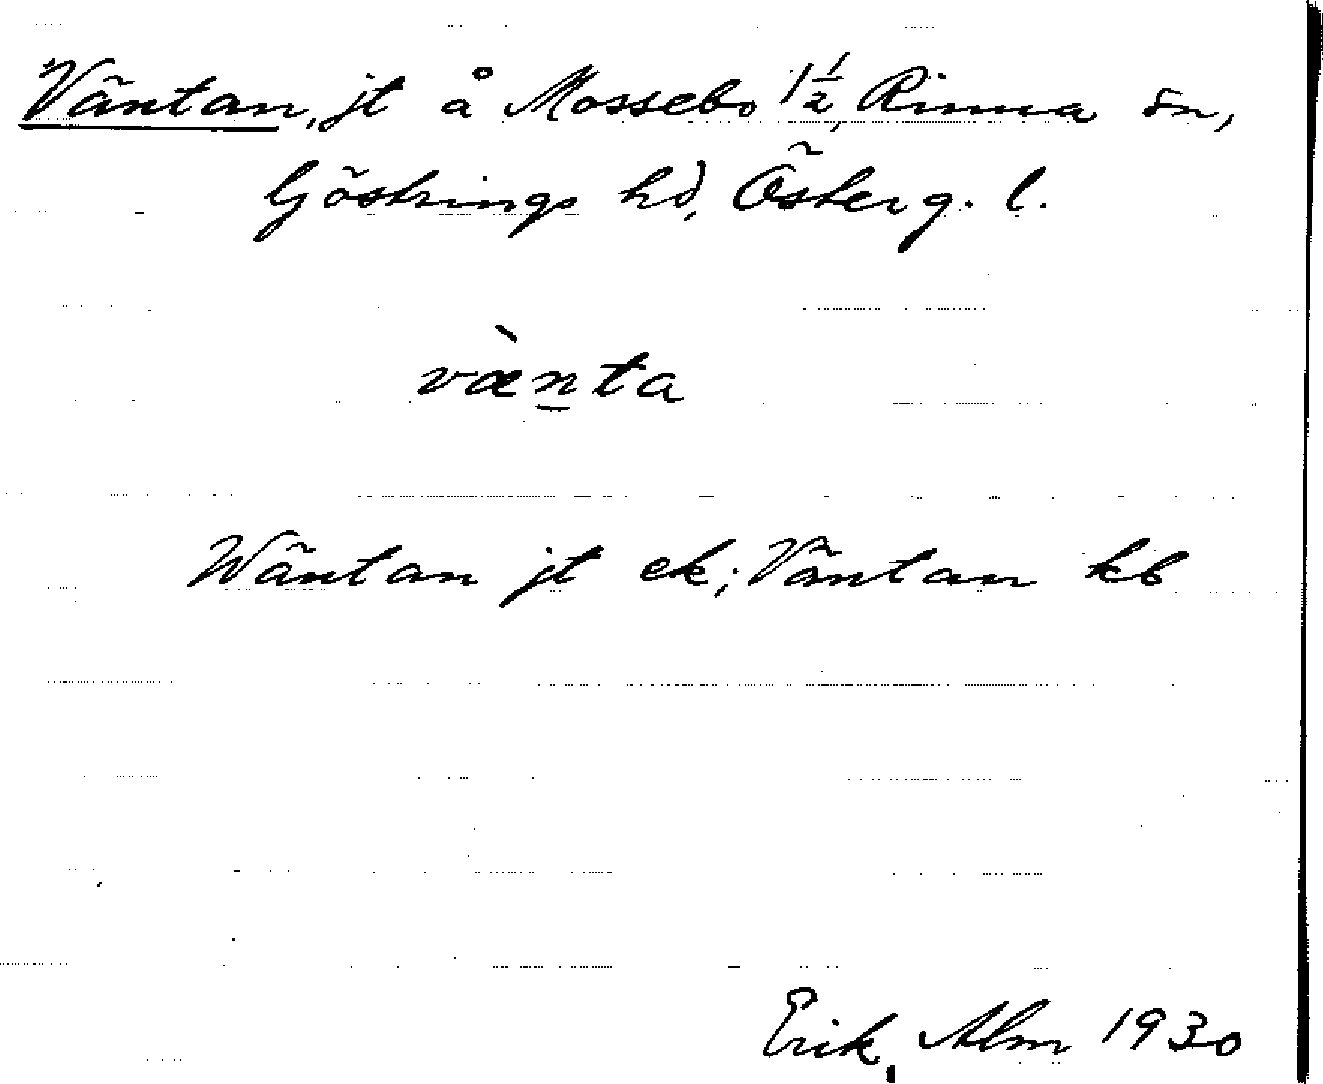 Väntan, jt å Mossebo 1 1/2, Rinna sn,
Göstrings hd, Österg. l.
væ̀n̲ta
Wäntan jt ek; Väntan kb
Erik Alm 1930